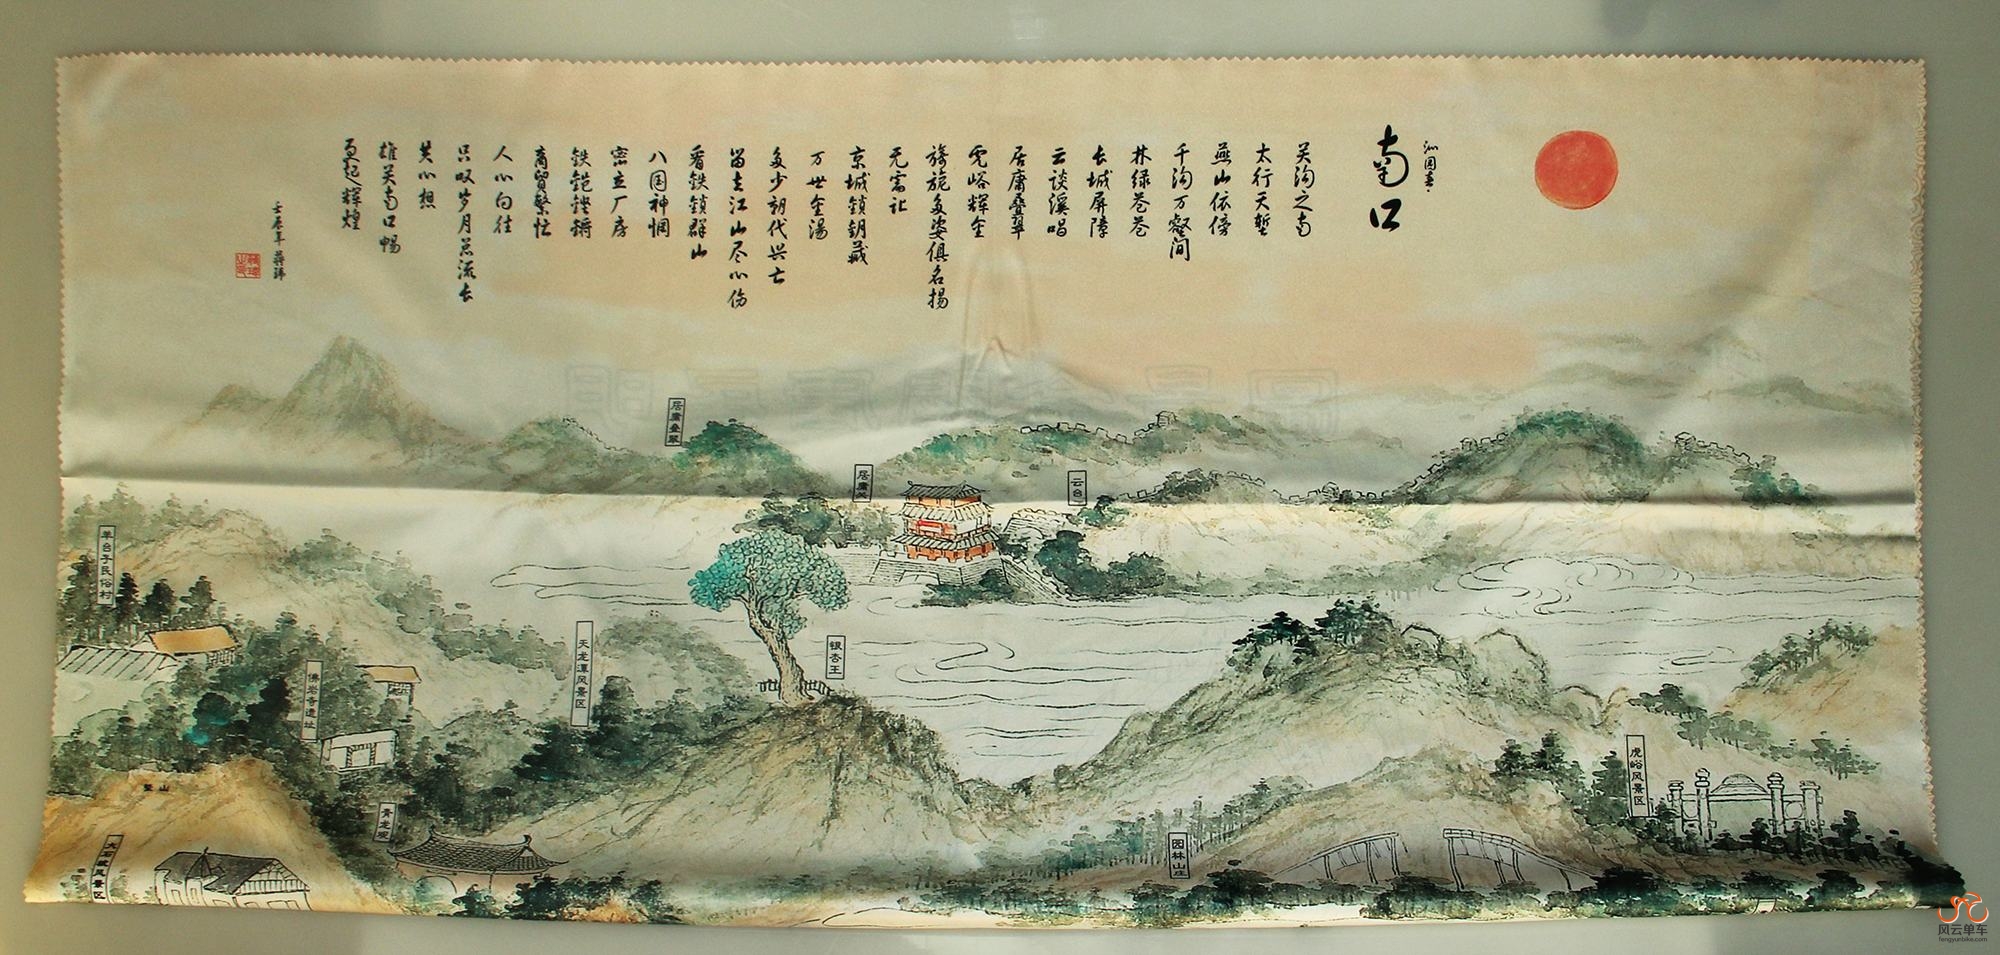 沁园春·
南口
关沟之南
太行天堑
燕山依傍
千沟万壑间
林绿苍苍
长城屏障
云谈溪唱
居庸叠翠
虎峪辉金
旖旎多姿俱名扬
无需让
京城锁钥藏
万世金汤
多少朝代兴亡
留去江山尽心伤
看铁锁群山
八国神惘
密立厂房
铁铠铿锵
商贸繁忙
人心向往
只叹岁月总流长
共心想
雄关南口畅
更起辉煌
壬辰年 蒋
居庸叠翠
居庸关
云台
羊台子民俗村
佛岩寺遗址
天龙潭风景区
银杏王
虎峪风景区
青龙观
园林山庄
大石破风景区
风云单车
fengyunbike.com